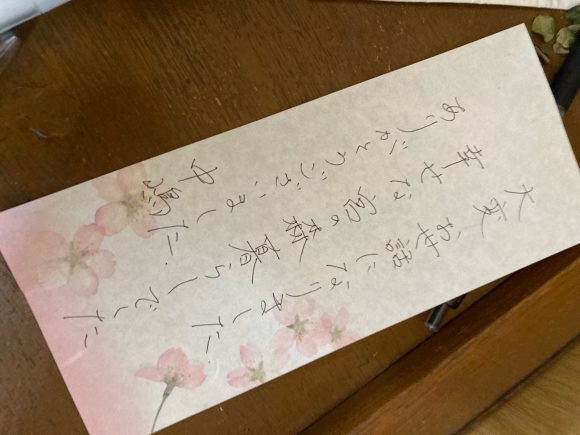 大変お世話になりました.
幸せな宮の森暮らしでした
ありがとうございました.
中嶋